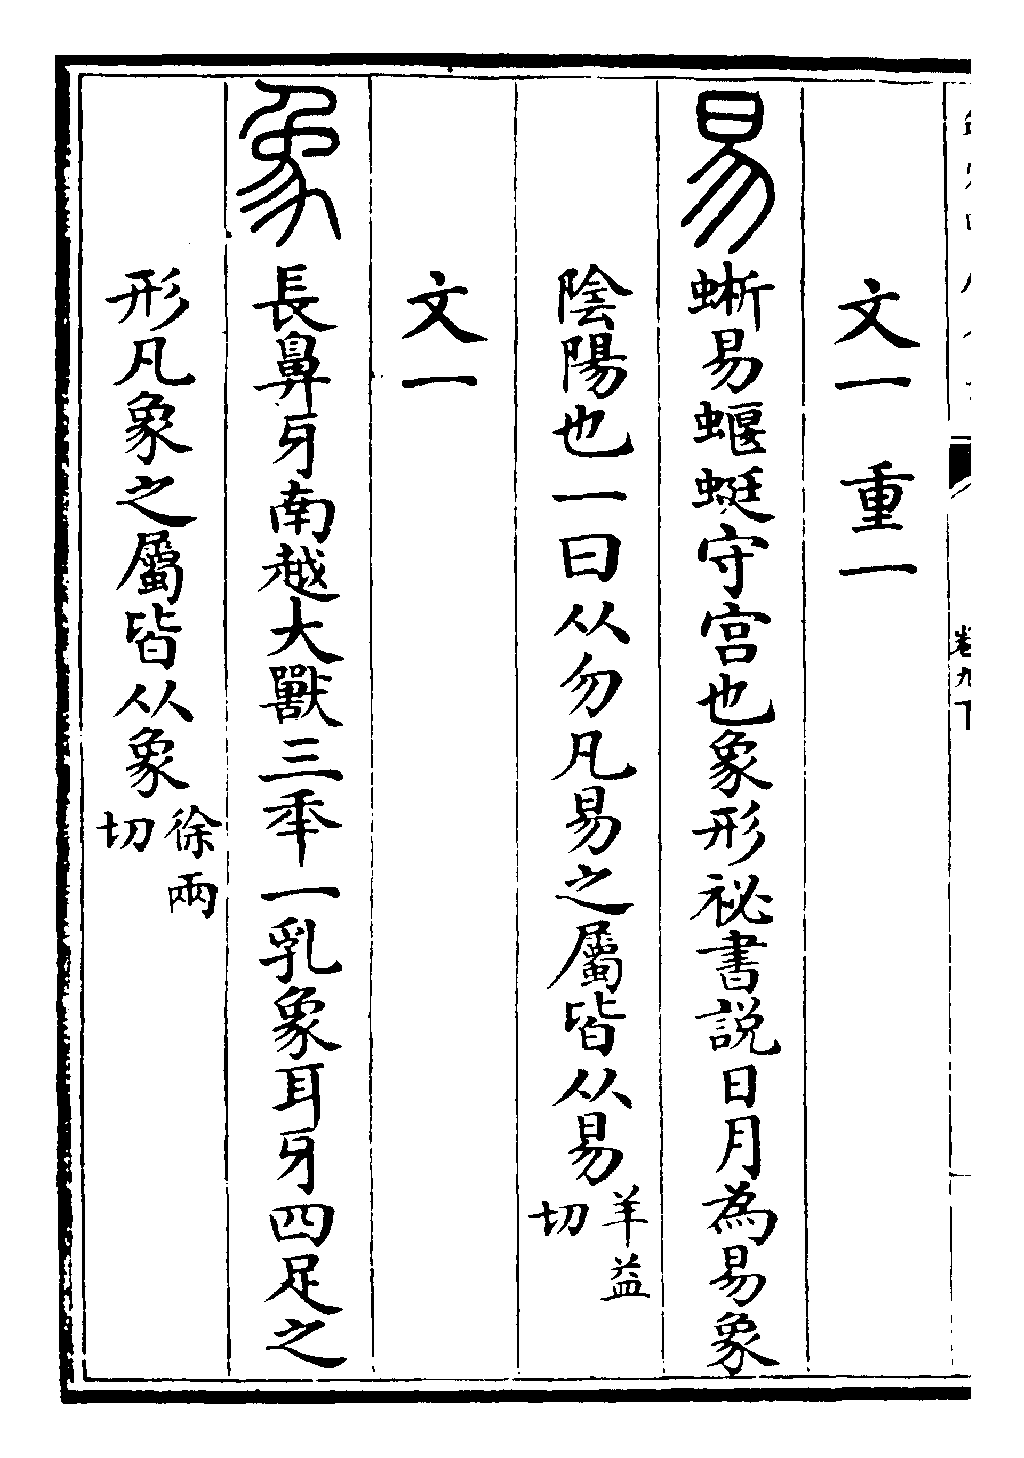 卷九下
文一 重一
易 蜥易蝘蜓守宫也象形祕書説日月為易象
陰陽也一曰从勿凡易之屬皆从易羊益切
文一
象 長鼻牙南越大獸三秊一乳象耳牙四足之
形凡象之屬皆从象徐兩切